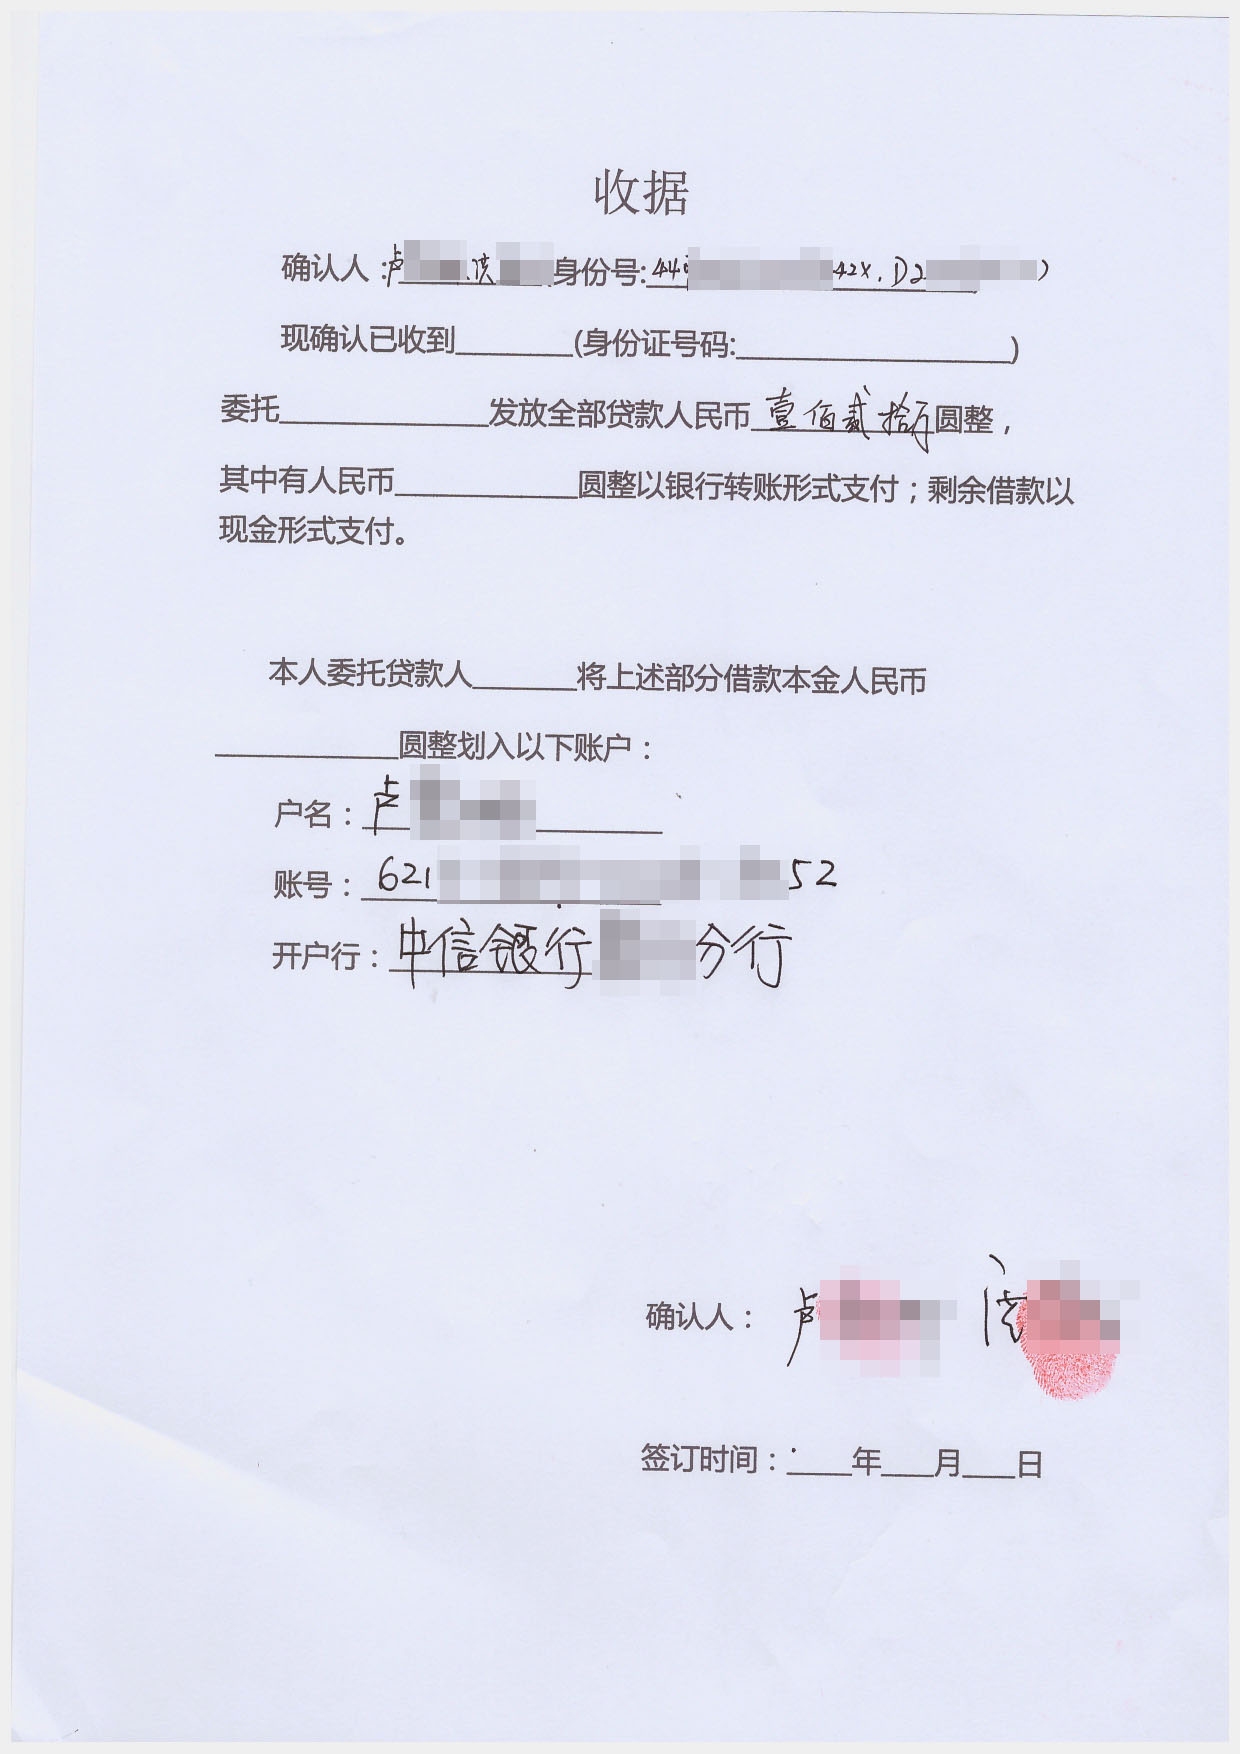 收据
确认人:卢 身份号:44 42X. D2 )
现确认已收到________(身份证号码:________________)
委托______________发放全部贷款人民币壹佰贰拾万圆整，
其中有人民币____________圆整以银行转账形式支付；剩余借款以
现金形式支付。
本人委托贷款人_______将上述部分借款本金人民币
____________圆整划入以下账户：
户名：卢
账号：621 52
开户行：中信银行 分行
确认人： 卢
签订时间：____年___月___日